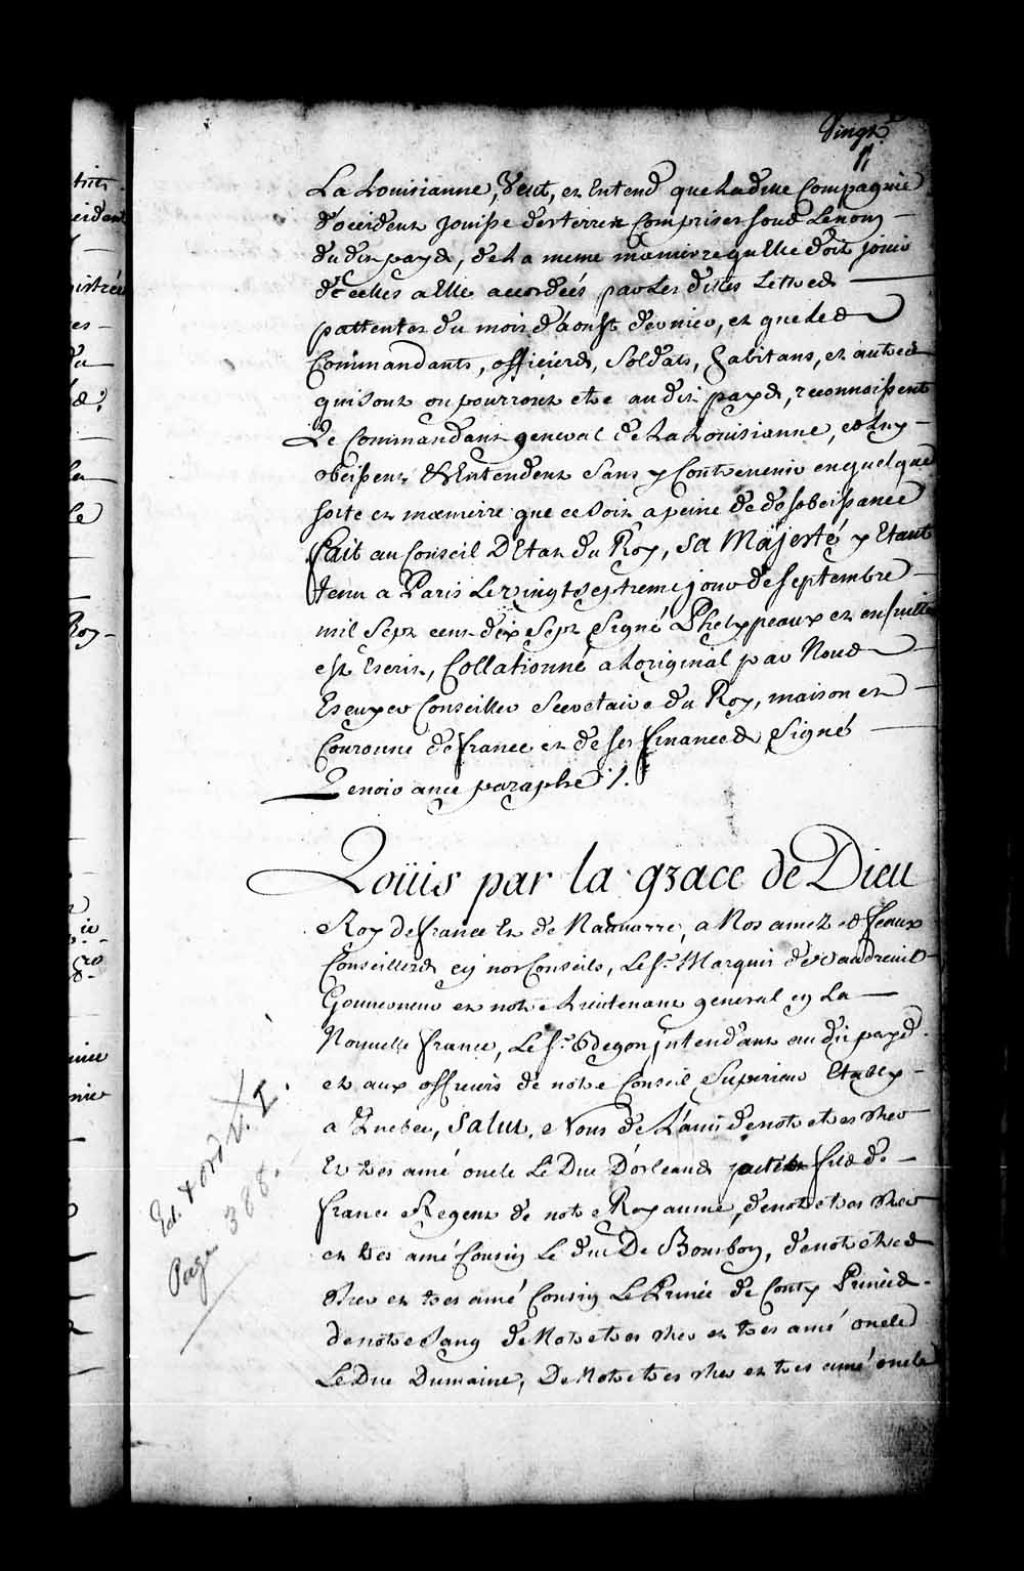 Vingt
La Louisianne, Veut, et Entend que Ladite Compagnie
d'occident Jouisse des terres Comprises sous Le nom
du dit pays, de La meme maniere qu'elle doit jouir
de celles a Elle accordées par Les dittes Lettres
pattentes du mois d'aoust dernier, et que les
Commandants, officiers, Soldats, habitans, et autres
qui sont ou pourront etre au dit pays, reconnoissent
Le Commandant general de La Louisianne, et Luy
obeissent & Entendent Sans y Contrevenir en quelque
sorte et maniere que ce soit a peine de desobeissance
fait au Conseil D'Etat du Roy, Sa Majesté y Etant
tenu a Paris Le vingt septieme jour de septembre
mil Sept cent dix Sept Signé Phelypeaux et ensuitte
est Escrit, Collationné a Loriginal par Nous
Escuyer Conseiller Secretaire du Roy, maison et
Couronne de france et de ses finances Signé
Lenoir avec paraphe ./.
Loüis par la grace de Dieu
Roy de france Et de Navarre, a Nos amez et feaux
Conseillers en nos Conseils, Le Sr. Marquis de Vaudreuil
Gouverneur et notre Lieutenant general en La
Nouvelle france, Le Sr. Begon Intendant au dit pays
et aux officiers de notre Conseil Superieur Etably
a Quebec, Salut. Nous de L'avis de notre tres cher
Et tres amé oncle Le Duc D'orleans petit fils de
france Regent de notre Royaume, de notre tres cher
et tres amé Cousin Le duc De Bourbon, de notre tres
cher et tres amé Cousin Le Prince de Conty Princes
de notre Sang de Notre tres cher et tres amé oncle
Le Duc Dumaine, De Notre tres cher et tres amé oncle
Ed. & ord. V. I.
Page 388.